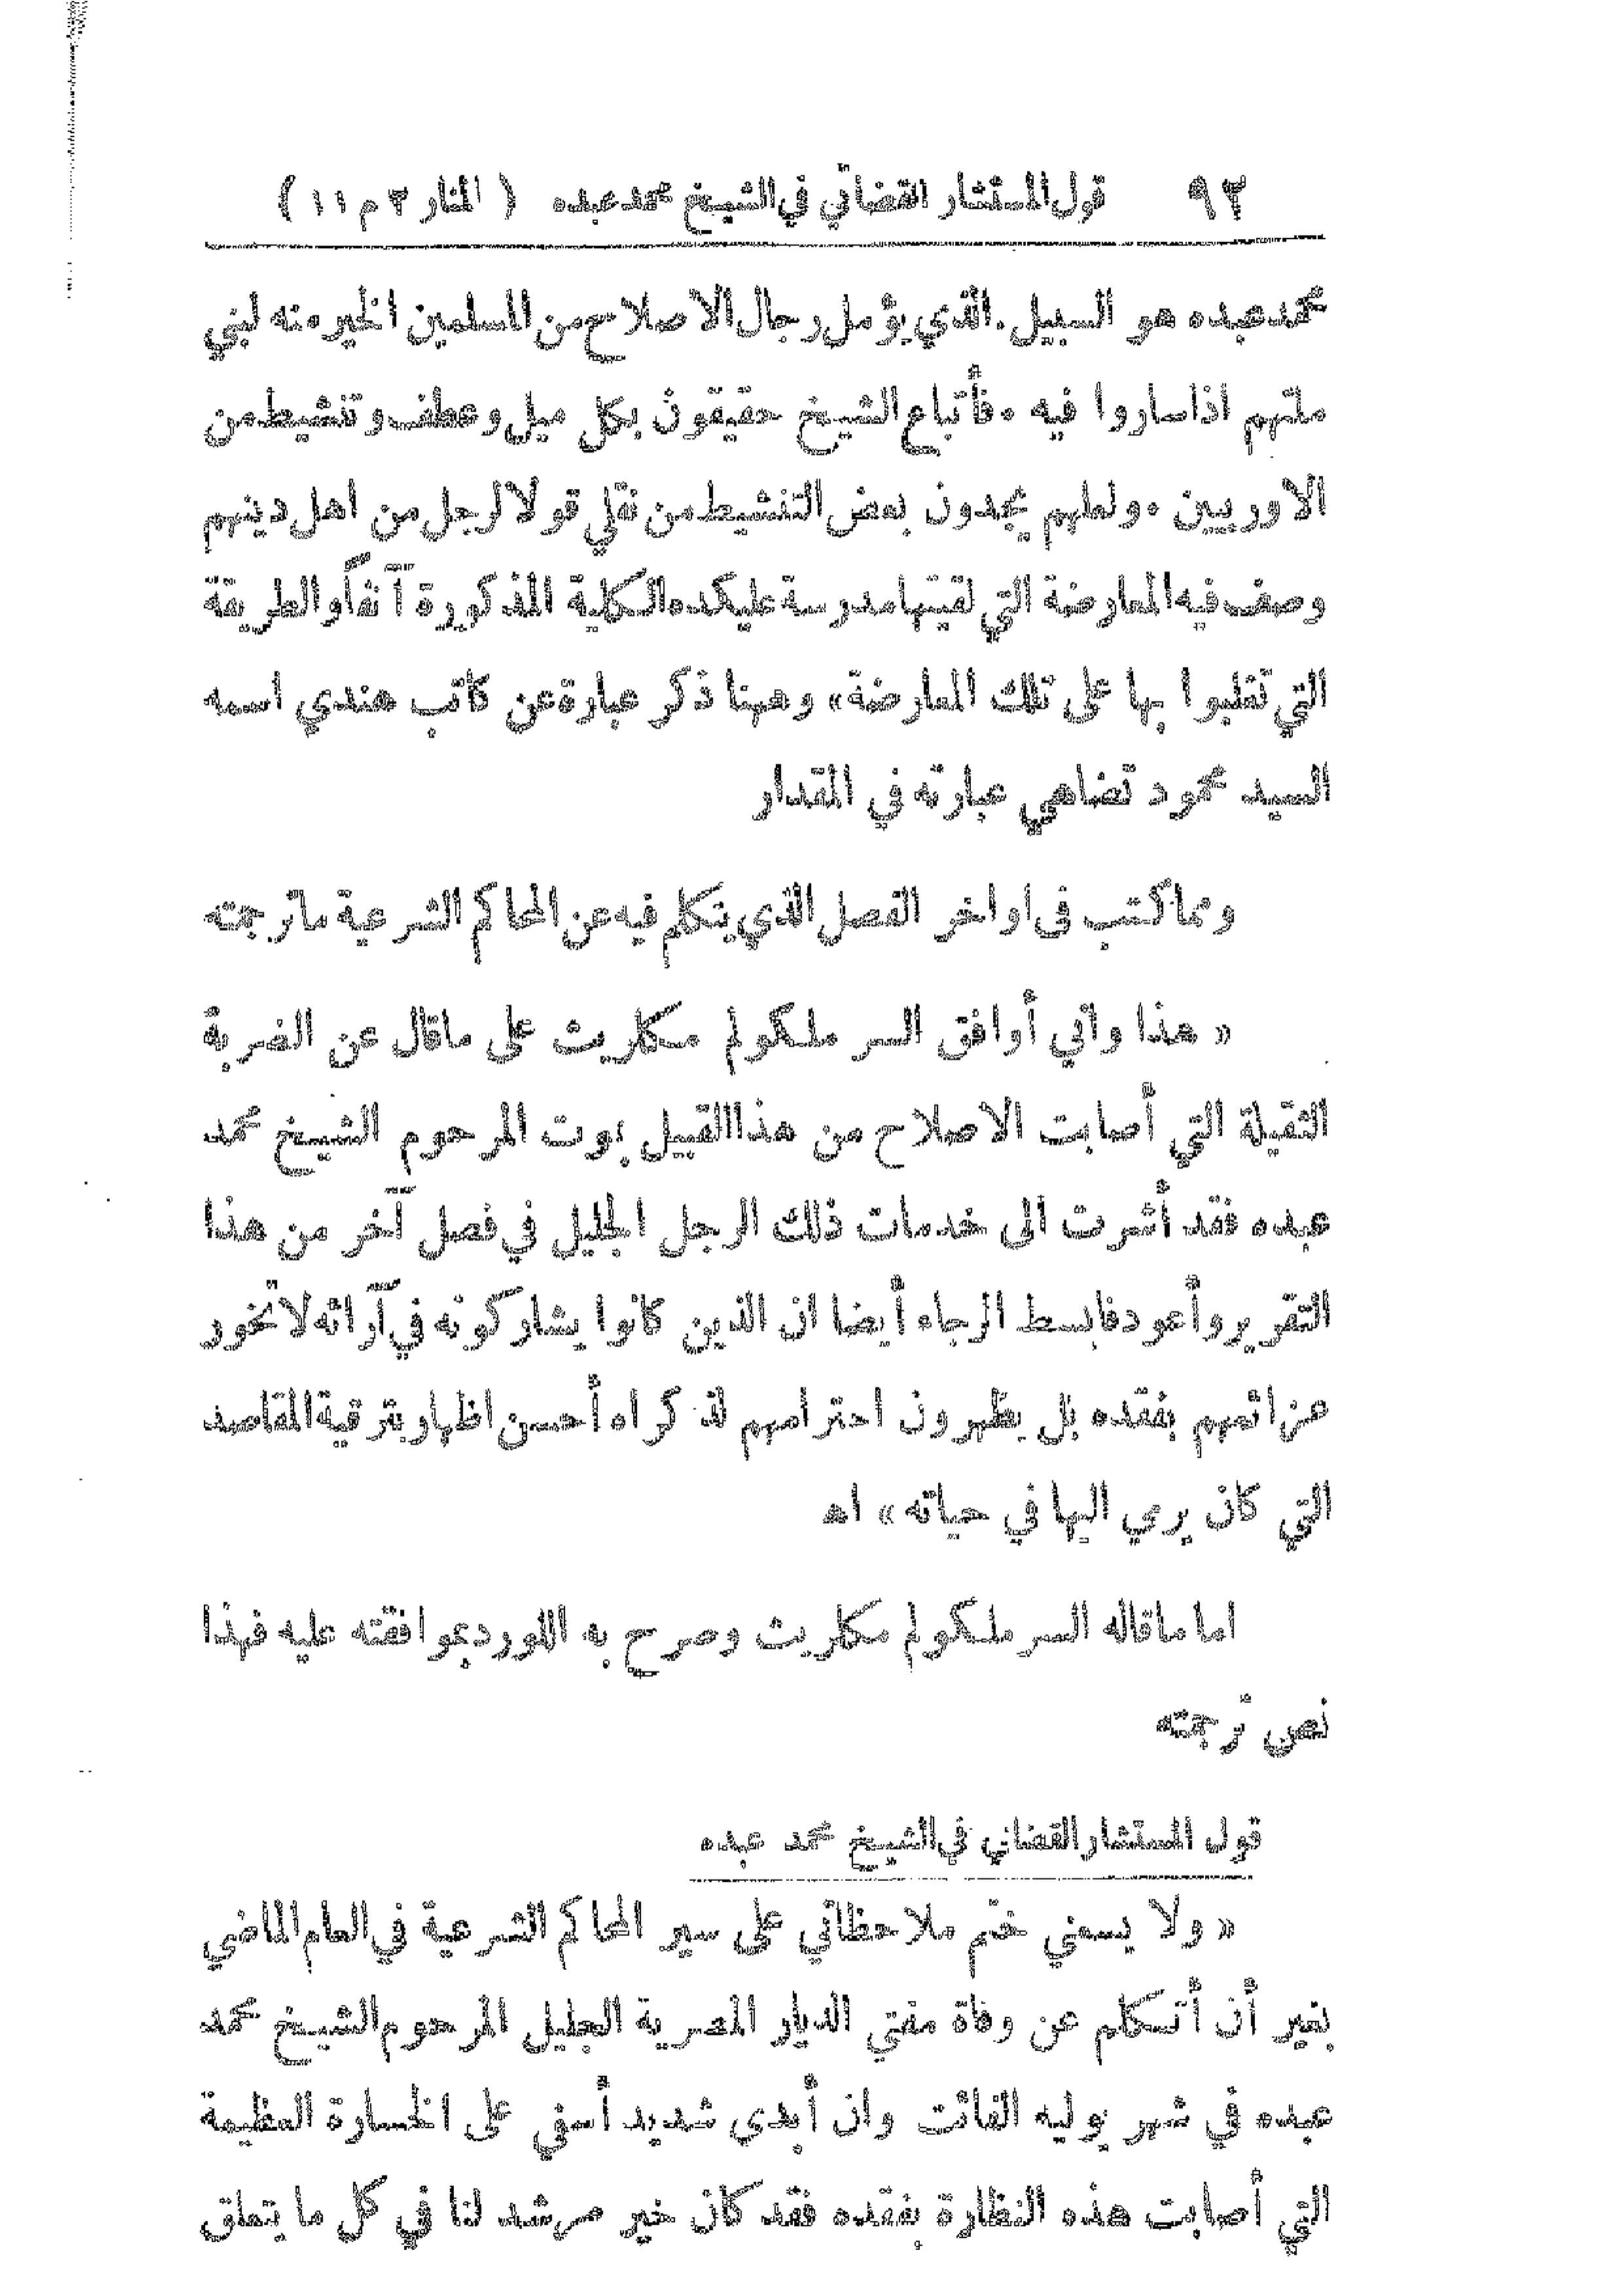 ٩٢ قول المستشار القضائي في الشيخ محمد عبده ( المنار ٢ م ١١ )
محمد عبده هو السبيل . الذي يؤمل رجال الاصلاح من المسلمين الخير منه لبني
ملتهم اذا ساروا فيه . فأتباع الشيخ حقيقون بكل ميل وعطف وتنشيط من
الاوربيين . ولعلهم يجدون بعض التنشيط من نقلي قولا لرجل من اهل دينهم
وصف فيه المعارضة التي لقيتها مدرسة عليكده الكلية المذكورة آنفاً والطريقة
التي تغلبوا بها على تلك المعارضة » وههنا ذكر عبارة عن كاتب هندي اسمه
السيد محمود تضاهي عبارته في المقدار
ومما كتب في اواخر الفصل الذي يتكلم فيه عن المحاكم الشرعية ما ترجمته
« هذا واني أوافق السر ملكولم مكلريث على ماقال عن الضربة
الثقيلة التي أصابت الاصلاح من هذا القبيل بموت المرحوم الشيخ محمد
عبده فقد أشرت الى خدمات ذلك الرجل الجليل في فصل آخر من هذا
التقرير وأعود فابسط الرجاء أيضا ان الذين كانوا يشاركونه في آرائه لا تخور
عزائمهم بفقده بل يظهرون احترامهم لذكراه أحسن اظهار بترقية المقاصد
التي كان يرمي اليها في حياته » اه
اما ماقاله السر ملكولم مكلريث وصرح به اللورد بموافقته عليه فهذا
نص ترجمته
قول المستشار القضائي في الشيخ محمد عبده
« ولا يسعني ختم ملاحظاتي على سير المحاكم الشرعية في العام الماضي
بغير أن أتكلم عن وفاة مفتي الديار المصرية الجليل المرحوم الشيخ محمد
عبده في شهر يوليه الفائت وان أبدى شديد أسفي على الخسارة العظيمة
التي أصابت هذه النظارة بفقده فقد كان خير مرشد لنا في كل ما يتعلق